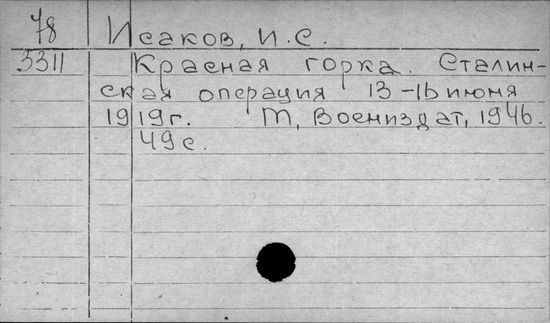 78 Исаков, И.С.
5311 Красная горка. Сталин-
ская операция 13-16 июня
1919г. М, Воениздат, 1946.
49с.